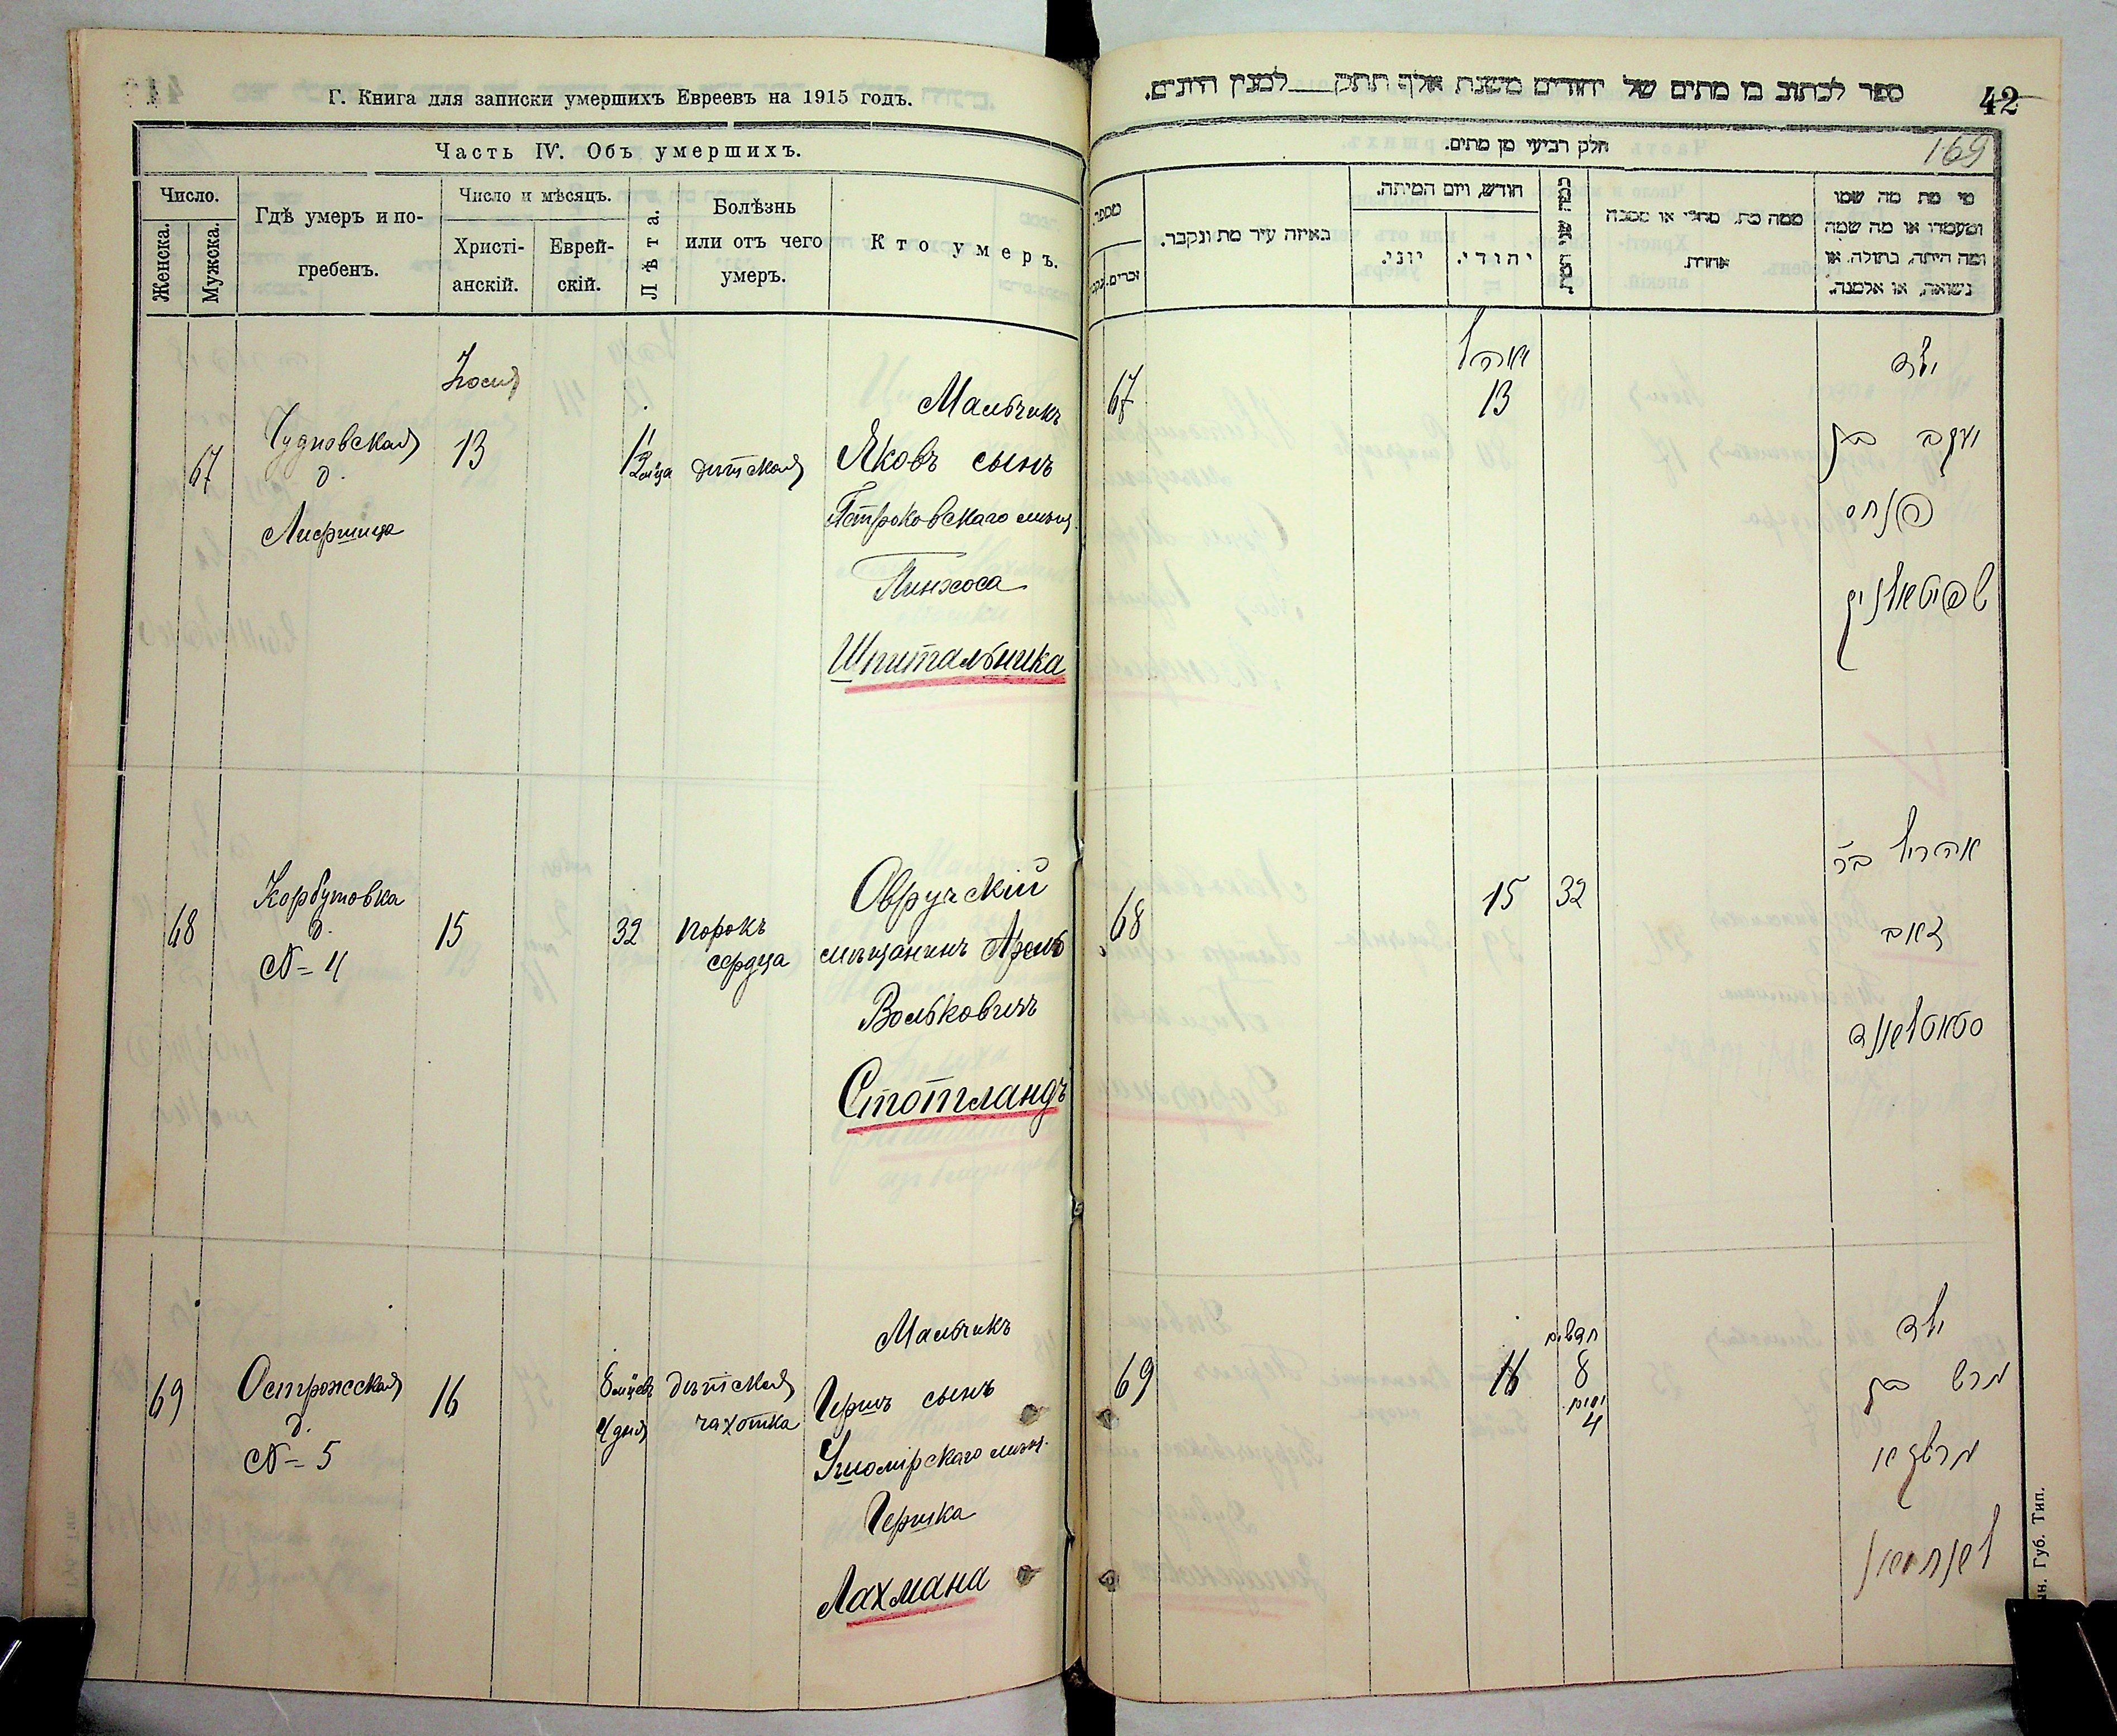 Г. Книга для записки умершихъ Евреевъ на 1915 годъ.
Часть IV. Объ умершихъ.
Число.
Женска.
Мужска.
Гдѣ умеръ и по-
гребенъ.
Число и мѣсяцъ.
Христі-
анскій.
Еврей-
скій.
Лѣта.
Болѣзнь
или отъ чего
умеръ.
Кто умеръ.
67
Чудновская
д.
Лифшица
13
дѣтская
Мальчикъ
Яковъ сынъ
Пинхоса
Шпитальника
68
Корбутовка
д.
№ 4
15
32
порокъ
сердца
Овручскій
мѣщанинъ
Вольковичъ
Стотландъ
69
Острожская
д.
№ 5
16
8 мцевъ
4 дня
дѣтская
чахотка
Мальчикъ
Гершъ сынъ
Гершка
Лахмана
ספר לכתוב בו מתים של יהודים משנת אלף תתק למנין היונים.
42
חלק רביעי מן מתים.
169
מספר
זכרים.
באיזה עיר מת ונקבר.
חודש, ויום המיתה.
יוני.
יהודי.
ממה מת, מחלי או מסבה
אחרת.
מי מת מה שמו
ומעמדו או מה שמה
ומה היתה, בתולה, או
נשואה, או אלמנה.
67
13
ילד
יעקב בן
פנחס
שפיטאלניק
68
15
32
זאב
סטאטלאנד
69
16
חדשים
8
ימים
4
ילד
הרש בן
לאחמאן
Губ. Тип.